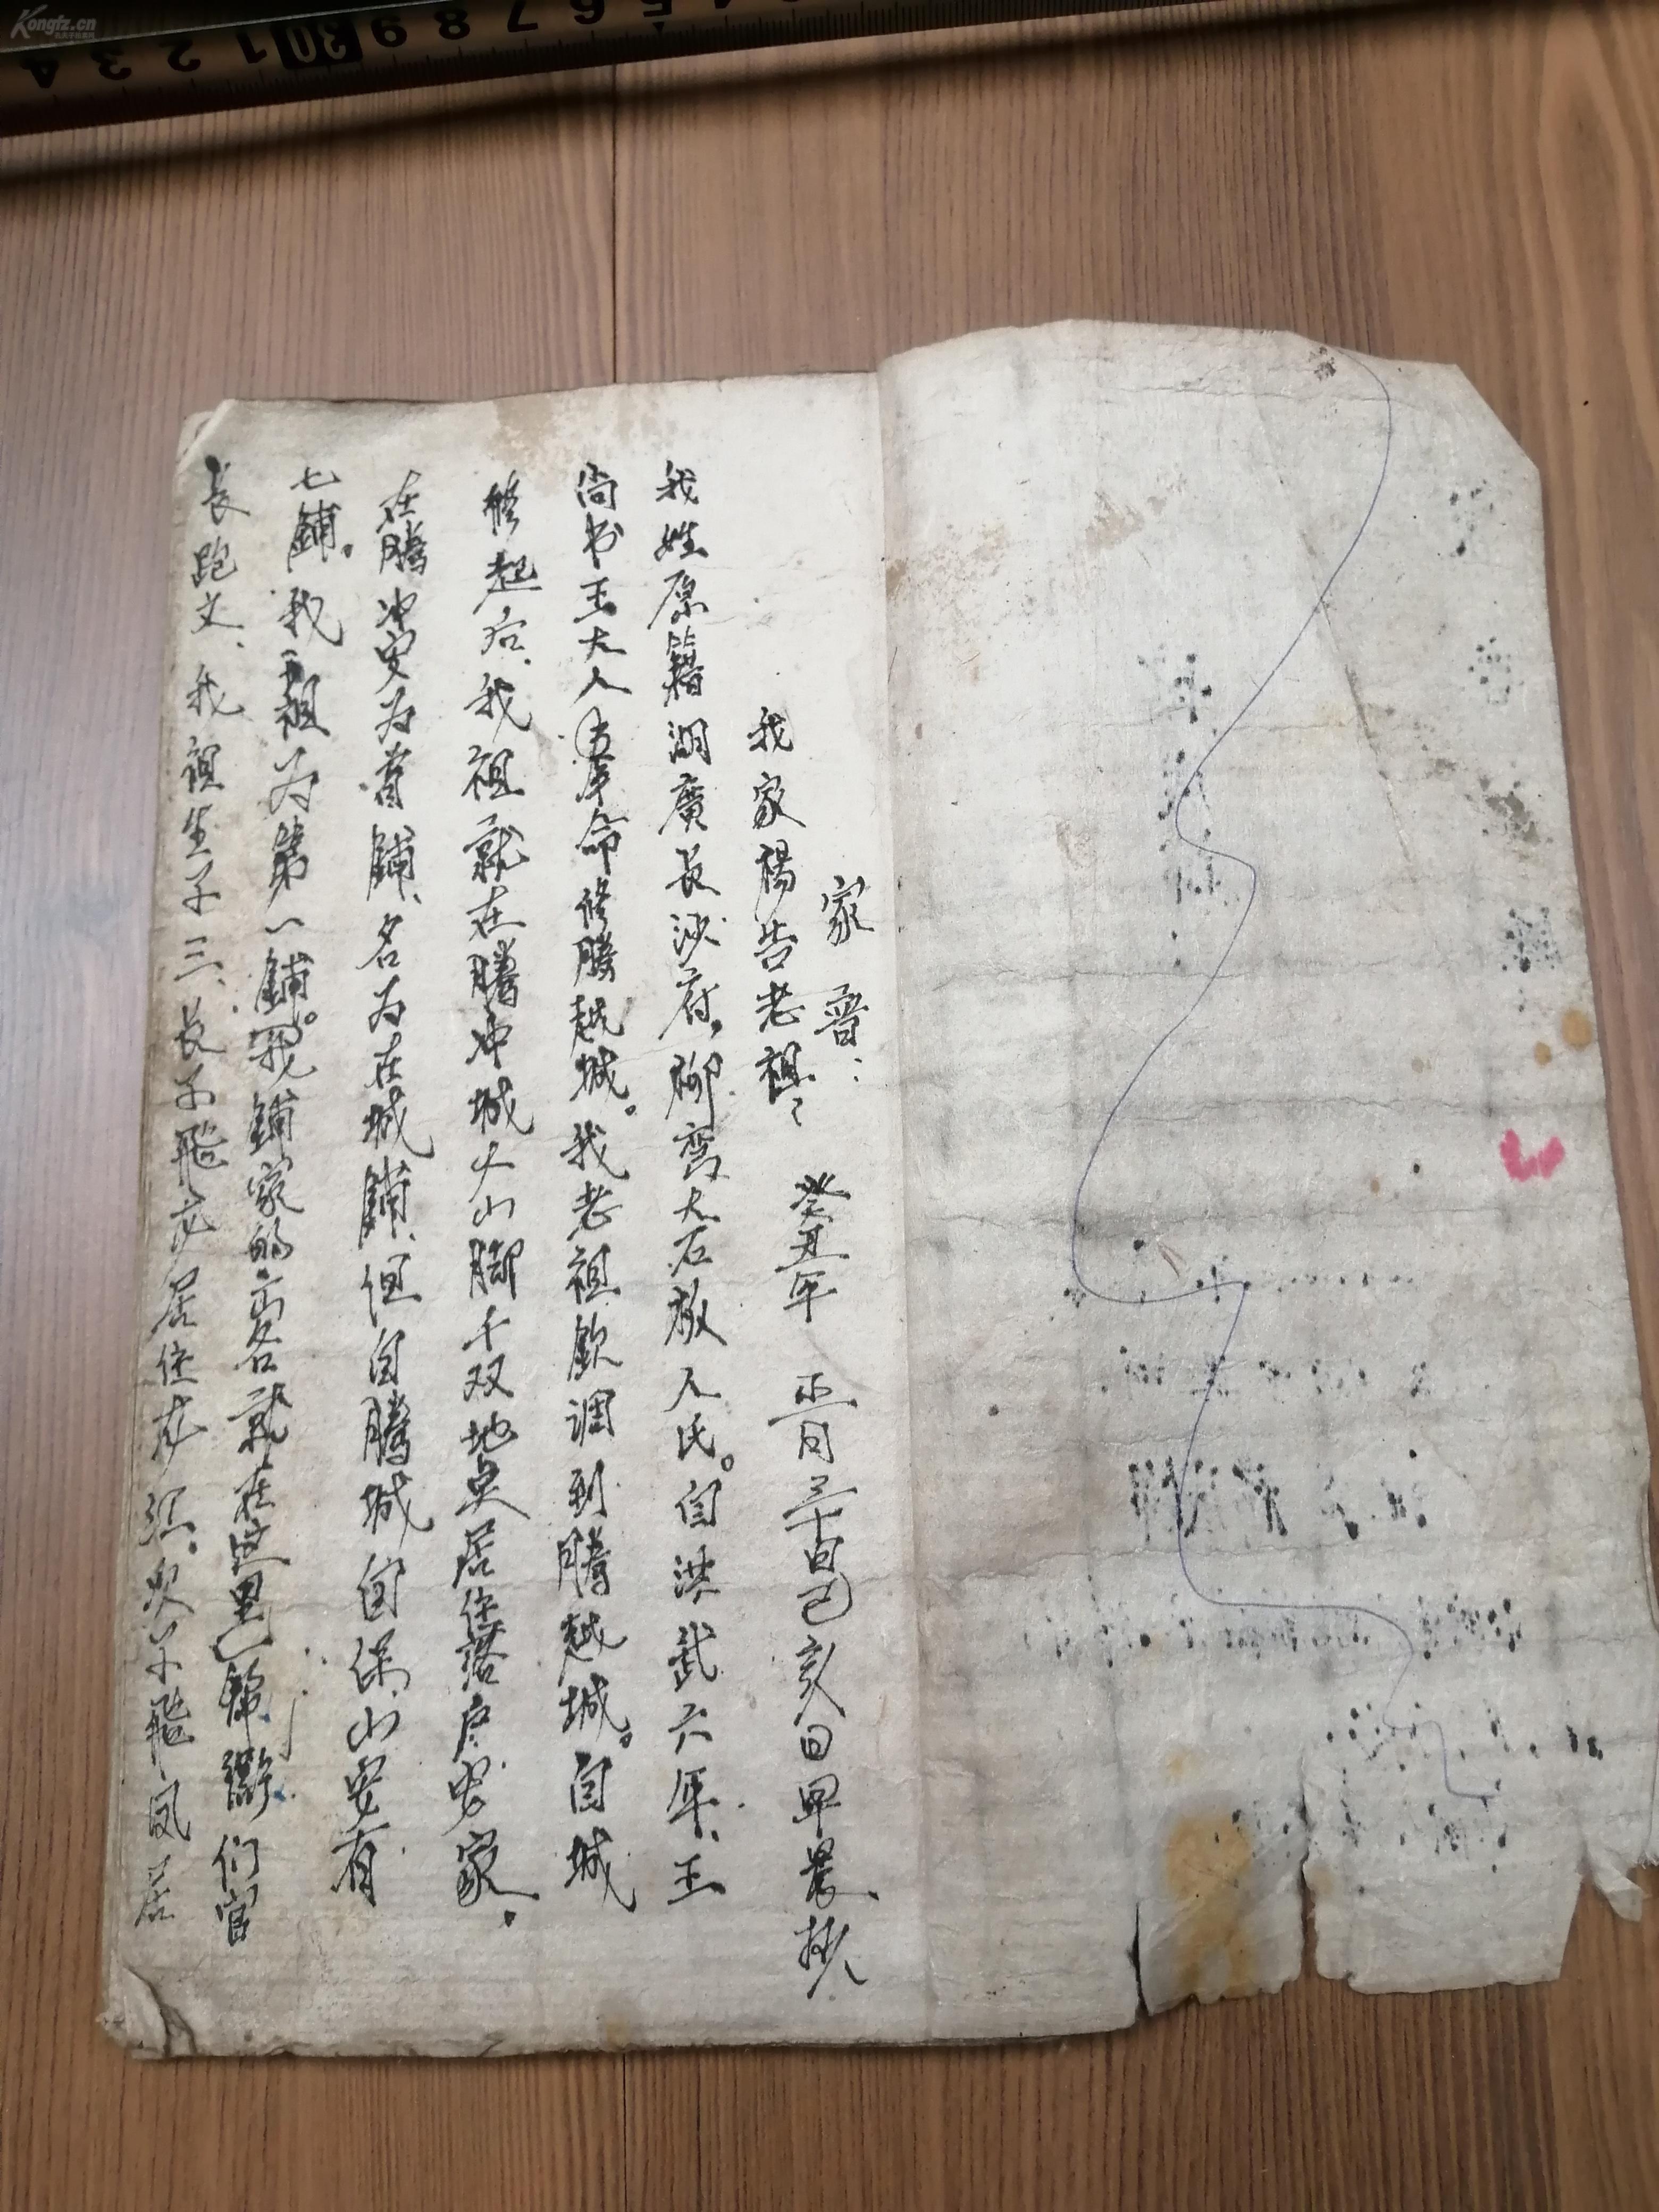 家晋：
我家楊告老祖〻 癸丑年 正月三十日己亥日早晨抄
我姓原籍湖廣長沙府，柳灣大石板人氏。自洪武六年、王
尚书王大人奉命修騰越城。我老祖欽調到騰越城。自城
修起后、我祖就在騰冲城火山脚千双地臾居住落户安家。
在騰冲安为首鋪、名为在城鋪、但自騰城自保山安有
七鋪。我祖为第一鋪。我鋪家的六名就在这里
長跑文、我祖生子三、長子飛龙居住龙江。次子飛凤居
Kongfz.cn
4 3 2 1 30 9 8 7 6 5